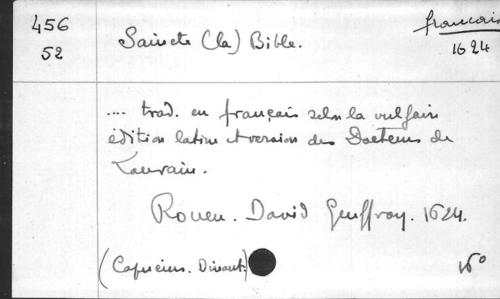 456
52
Saincte (la) Bible.
français
1624
.... trad. en français selon la vulgaire
édition latine et version des Docteurs de
Louvain.
Rouen. David Geuffroy. 1624.
(Capucins. Dinant.)
16°